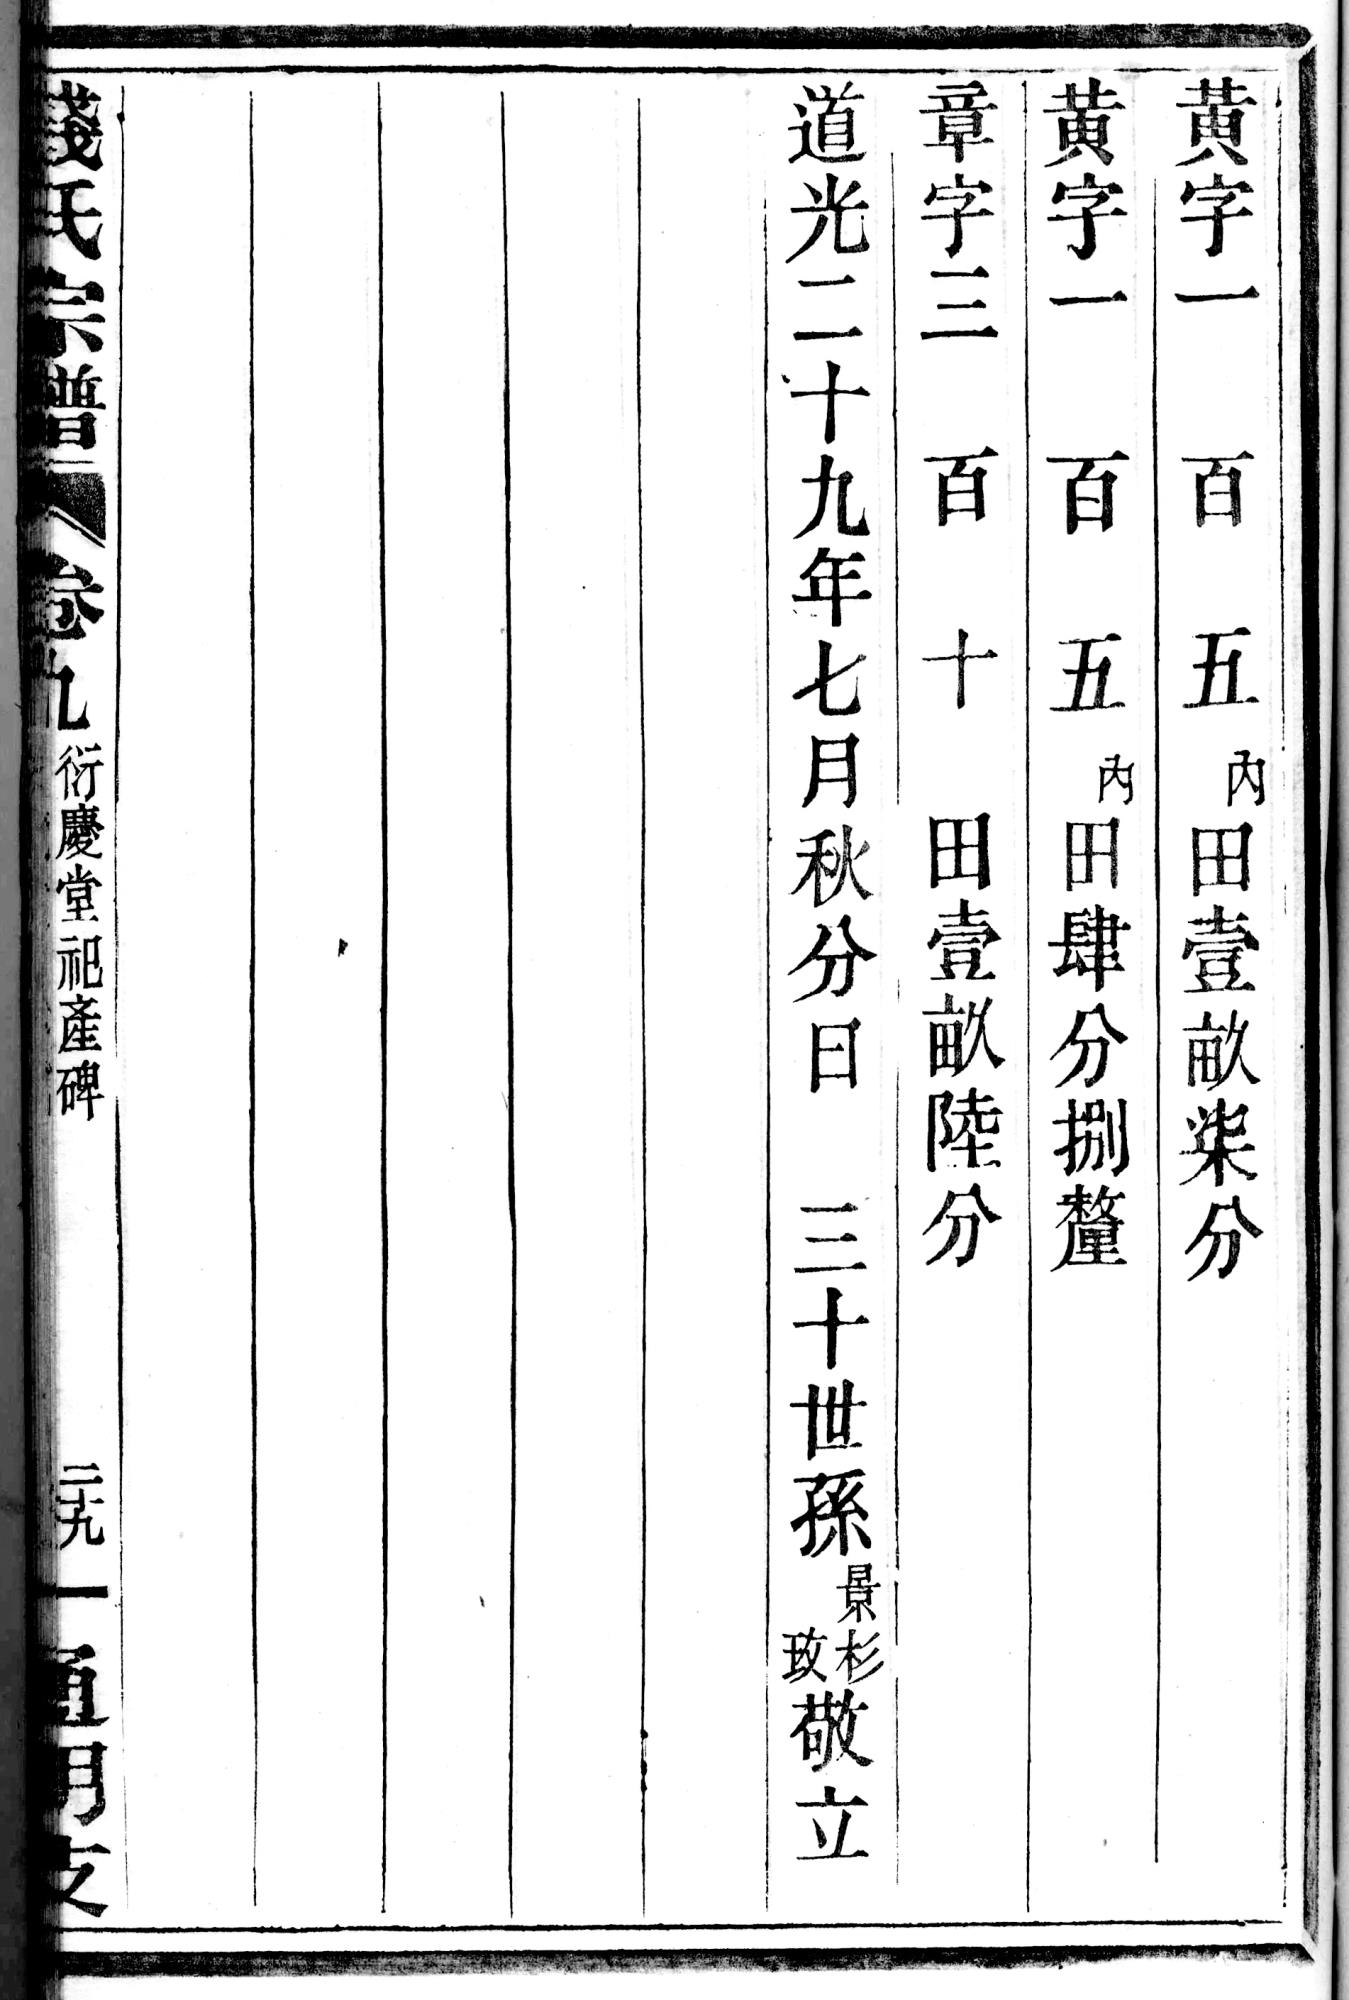 黄字一　百　五內田壹畝柒分
黄字一　百　五內田肆分捌釐
章字三　百　十　田壹畝陸分
道光二十九年七月秋分日　三十世孫景杉玫敬立
錢氏宗譜　卷九　衍慶堂祀產碑　二十九　一　通明支